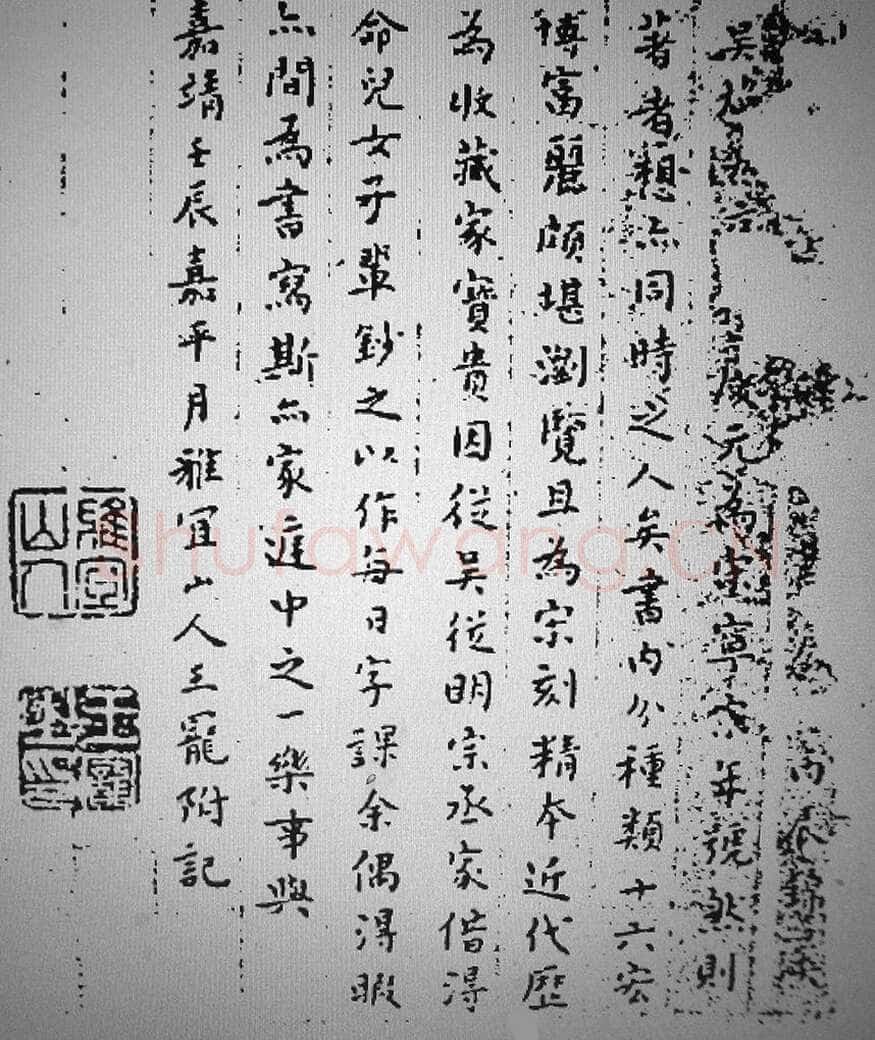 慶元為宋寧宗年號然則
著者想亦同時之人矣書內分種類十六宏
博富麗頗堪瀏覽且為宋刻精本近代歷
為收藏家寶貴因從吳從明宗丞家借得
命兒女子輩鈔之以作每日字課余偶得暇
亦間為書寫斯亦家庭中之一樂事與
嘉靖壬辰嘉平月雅宜山人王寵附記
雅宜山人
王寵
shufawang.CN